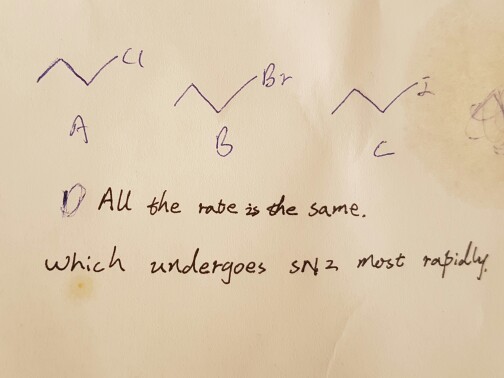 Cl
Br
I
A
B
C
D All the rate is the same.
Which undergoes SN2 most rapidly.